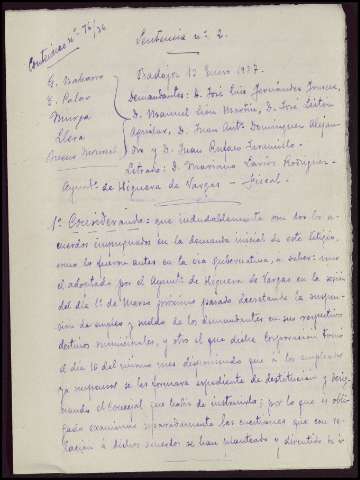 Contencioso nº 76/36
Sentencia nº 2.
Badajoz 13 Enero 1937.
G. Navarro
E. Palar
Murga
Llera
Demandantes: D. José Luis Fernández
D. Manuel León Martín, D. José
Aguilar, D. Juan Antº Domínguez
dro y D. Juan Rufaso Jaramillo
Letrado: D. Mariano Larios Rodríguez
Ayuntº de Higuera de Vargas - Fiscal.
1º Considerando: que indudablemente son dos los a-
cuerdos impugnados en la demanda inicial de este litigio,
como lo fueron antes en la vía gubernativa, a saber: uno
el adoptado por el Ayuntº de Higuera de Vargas en la sesión
del día 1º de Marzo próximo pasado decretando la suspen-
sión de empleo y sueldo de los demandantes en sus respectivos
destinos municipales, y otro el que dicha Corporación tomó
el día 16 del mismo mes disponiendo que a los empleados
ya suspensos se les formara expediente de destitución y desig-
nando el Concejal que había de instruirlo; por lo que es obli-
gado examinar separadamente las cuestiones que con re-
lación á dichos acuerdos se han planteado y